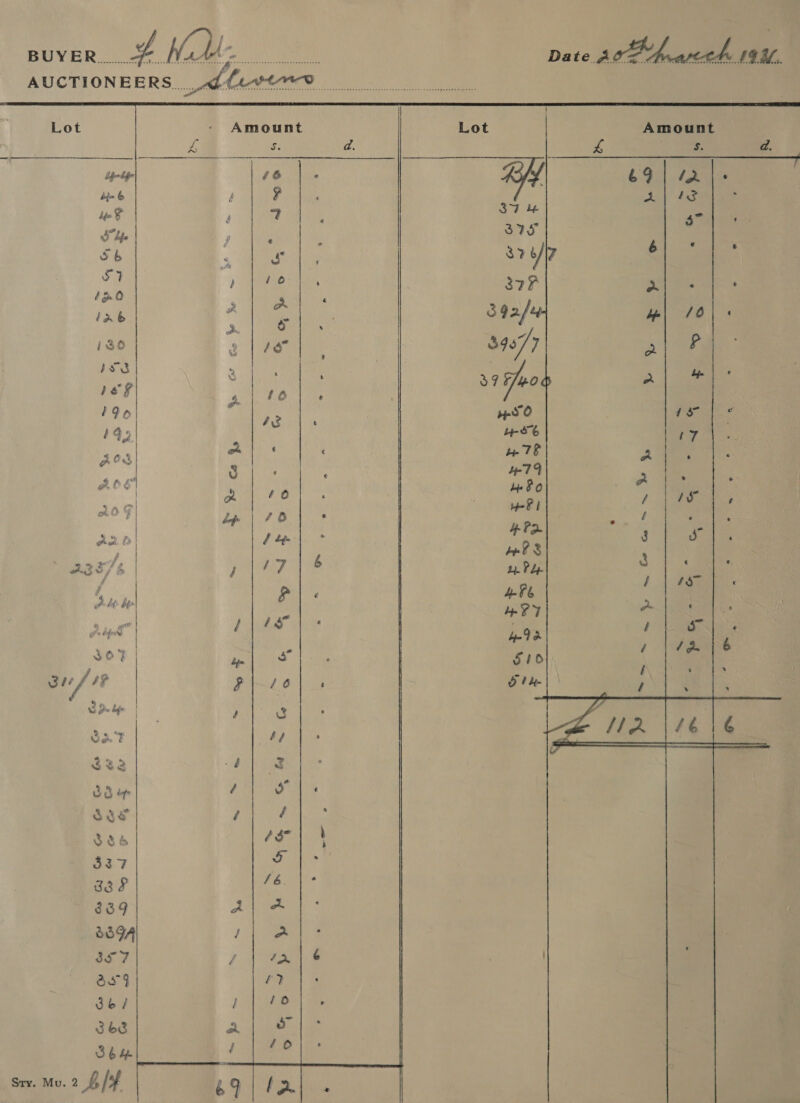 BUYER
Date 20th March 19
AUCTIONEERS
Lot Amount
£ s. d.
44 16 .
46 1 8 .
48 1 7 .
54 1 . .
56 2 5 .
57 1 10 .
120 2 2 .
126 2 5 .
130 3 15 .
153 3 . .
158 2 10 .
190 13 .
192 2 . .
203 3 . .
205 2 10 .
209 4 10 .
220 14 .
1 17 6
244 8 .
245 1 15 .
307 4 5 .
311/18 8 10 .
324 1 3 .
327 11 .
332 1 2 .
334 1 5 .
335 1 1 .
336 15
337 5 .
338 16 .
339 2 2 .
339A 1 2 .
357 1 12 6
359 17 .
361 1 10 .
363 2 5 .
364 1 10 .
Sry. Mu. 2 69 12 .
Lot Amount
£ s. d.
69 12 .
2 13 .
374 5 .
375
376/7 6 . .
378 2 . .
392/4 4 10 .
2 8 .
2 4 .
450 15 .
456 17 .
478 2 . .
479 2 . .
480 1 15 .
481 1 . .
482 3 5 .
483 3 . .
484 1 15 .
486 2 . .
487 1 5 .
492 1 12 6
510 1 . .
514 1 . .
£ 112 16 6